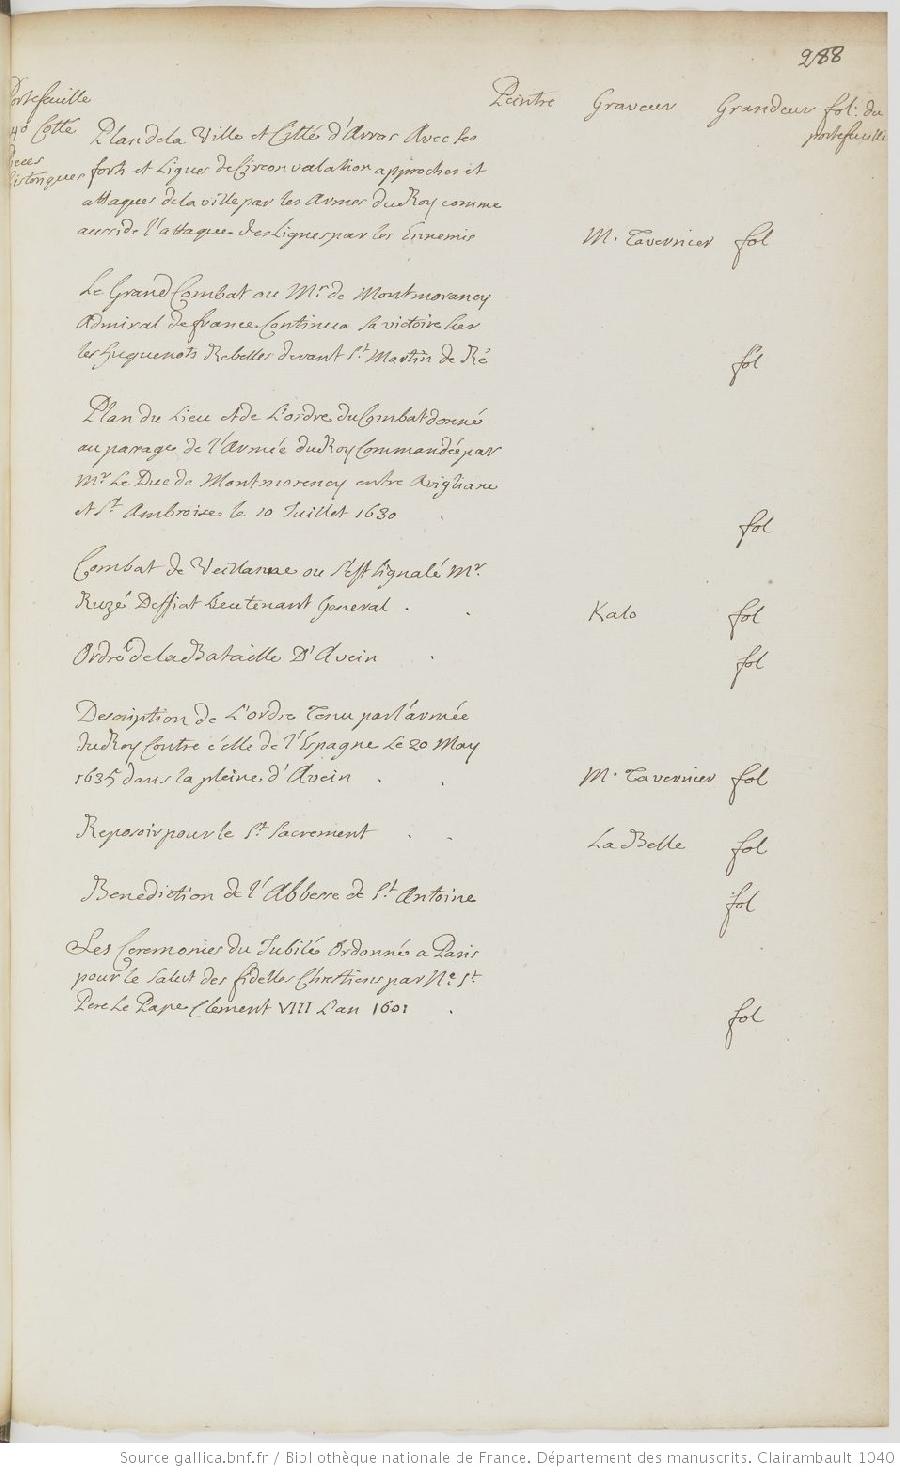 288
Portefeuille Peintre Graveur Grandeur fol. du
4º Cotté portefeuille
pieces
historiques
Plan de la Ville et Citté d'Arras Avec les
forts et Lignes de Circonvalation approches et
attaques de la ville par les Armes du Roy comme
aussi de l'attaque des Lignes par les Ennemis M. Tavernier fol
Le Grand Combat ou Mr. de Montmorancy
Admiral de france Continua sa victoire sur
les huguenots Rebelles devant St. Martin de Ré fol
Plan du Lieu et de L'ordre du Combat donné
au parage de l'Armée du Roy Commandée par
Mr. Le Duc de Montmorency entre Avigliane
et St. Ambroise le 10 Juillet 1630 fol
Combat de Veillanne ou s'est signalé Mr.
Ruzé Deffiat Lieutenant General Kalo fol
Ordre de la Bataille D'Avein fol
Description de L'ordre Tenu par l'armée
du Roy Contre celle de l'Espagne Le 20 May
1635 dans la pleine d'Avein M. Tavernier fol
Reposoir pour le St. Sacrement La Belle fol
Benediction de l'Abbesse de St. Antoine fol
Les Ceremonies du Jubilé Ordonné a Paris
pour le salut des fidelles Chrestiens par Ne. St.
Pere Le Pape Clement VIII L'an 1601 fol
Source gallica.bnf.fr / Bibliothèque nationale de France. Département des manuscrits. Clairambault 1040